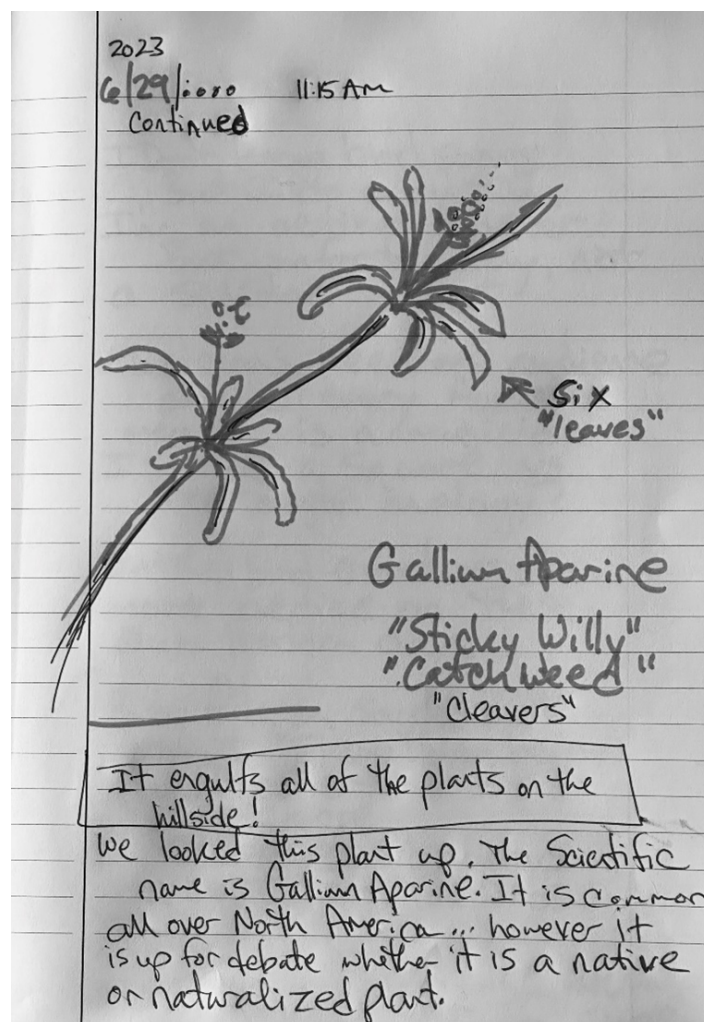 2023
6/29/
11:15 AM
Continued
Six
"leaves"
Gallium Aparine
"Sticky Willy"
"Catch weed"
"Cleavers"
It engulfs all of the plants on the
hillside!
We looked this plant up. The Scientific
name is Gallium Aparine. It is common
all over North America... however it
is up for debate whether it is a native
or naturalized plant.